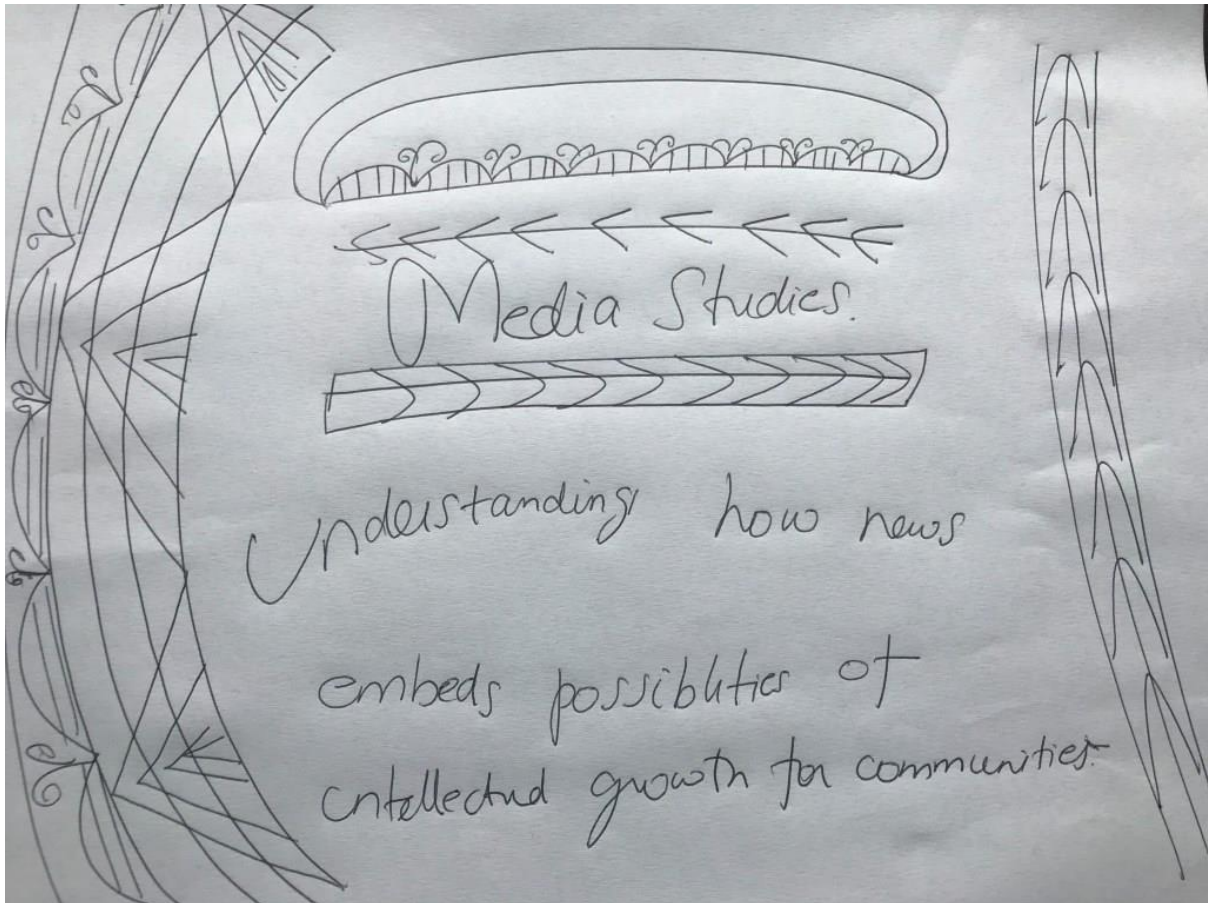 Media Studies.
Understanding how news
embeds possiblities of
intellectual growth for communities.